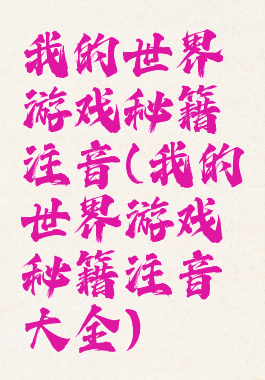 我的世界
游戏秘籍
注音(我的
世界游戏
秘籍注音
大全)